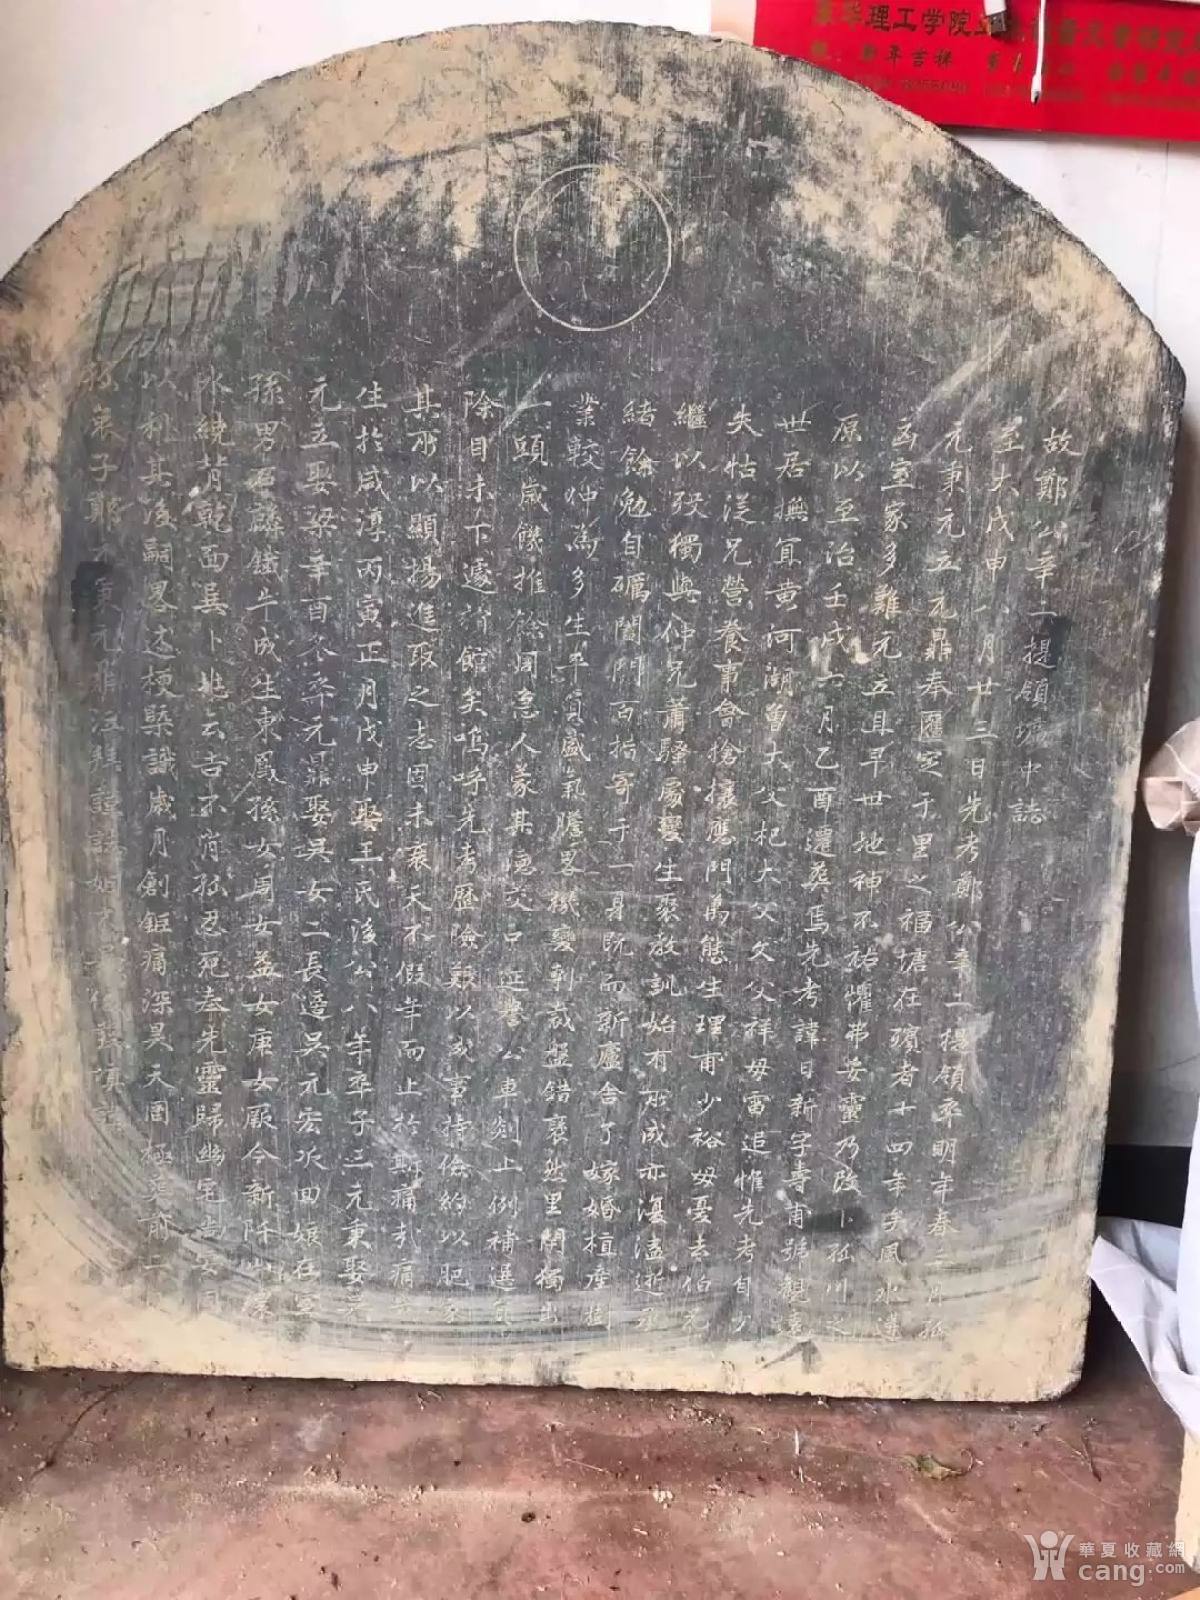 故鄭公辛二提領壙中誌
至大戊申八月廿三日先考鄭公辛二提領卒明年春三月孤
元秉元立元鼎奉匶窆于里之福塘在殯者十四年矣風水遺
凶室家多難元立且早世地神不祐懼弗安靈乃改卜孤川之
原以至治壬戌六月乙酉遷葬焉先考諱日新字壽甫號觀
世居撫宜黄河湖曾大父杞大父父祥母雷追惟先考自少
失怙從兄營養事會搶攘應門萬態生理甫少裕母憂去伯兄
繼以歿獨與仲兄蕭騷屢變生聚教訓始有所成亦復溘逝
緒餘勉自礪闔門百指寄于一身既而新廬舍了嫁婚植産樹
業較仲為多生平負盛氣騰畧機變剸裁盤錯裒然里閈獨出
一頭歲饑推餘周急人蒙其德交口延譽公車剡上例補選
除目未下遽捐館矣嗚呼先考歷險艱以成事持儉約以肥家
其所以顯揚進取之志固未衰天不假年而止於斯痛哉痛
生於咸淳丙寅正月戊申娶王氏後公八年卒子三元秉娶
元立娶梁辛酉冬卒元鼎娶吳女二長適吳元宏次回娘在室
孫男百麟鐵牛成生東鳳孫女周女益女庚女厥今新阡山
水繞背乾面巽卜兆云吉不肖孤忍死奉先靈歸幽宅尚安固
以利其後嗣畧述梗槩識歲月創鉅痛深昊天罔極葬前一
孤哀子鄭元秉元鼎泣拜謹誌
華夏收藏網
cang.com
吉祥